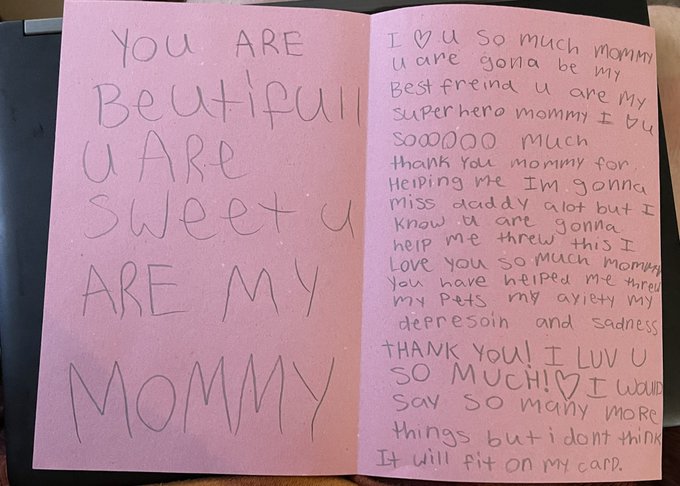 YOU ARE
Beutifull
u ARe
sweet u
ARE MY
MOMMY
I ♡ u so much mommy
u are gona be my
Best freind u are my
superhero mommy I ♡ u
sooooo much
thank you mommy for
Helping me Im gonna
miss daddy alot but I
know u are gonna
help me threw this I
Love you so much mommy
You have helped me threw
my pets my axiety my
depresoin and sadness
tHANK YOU! I LUV U
SO MUCH!♡ I WOULD
Say so many more
things but i dont think
It will fit on my card.